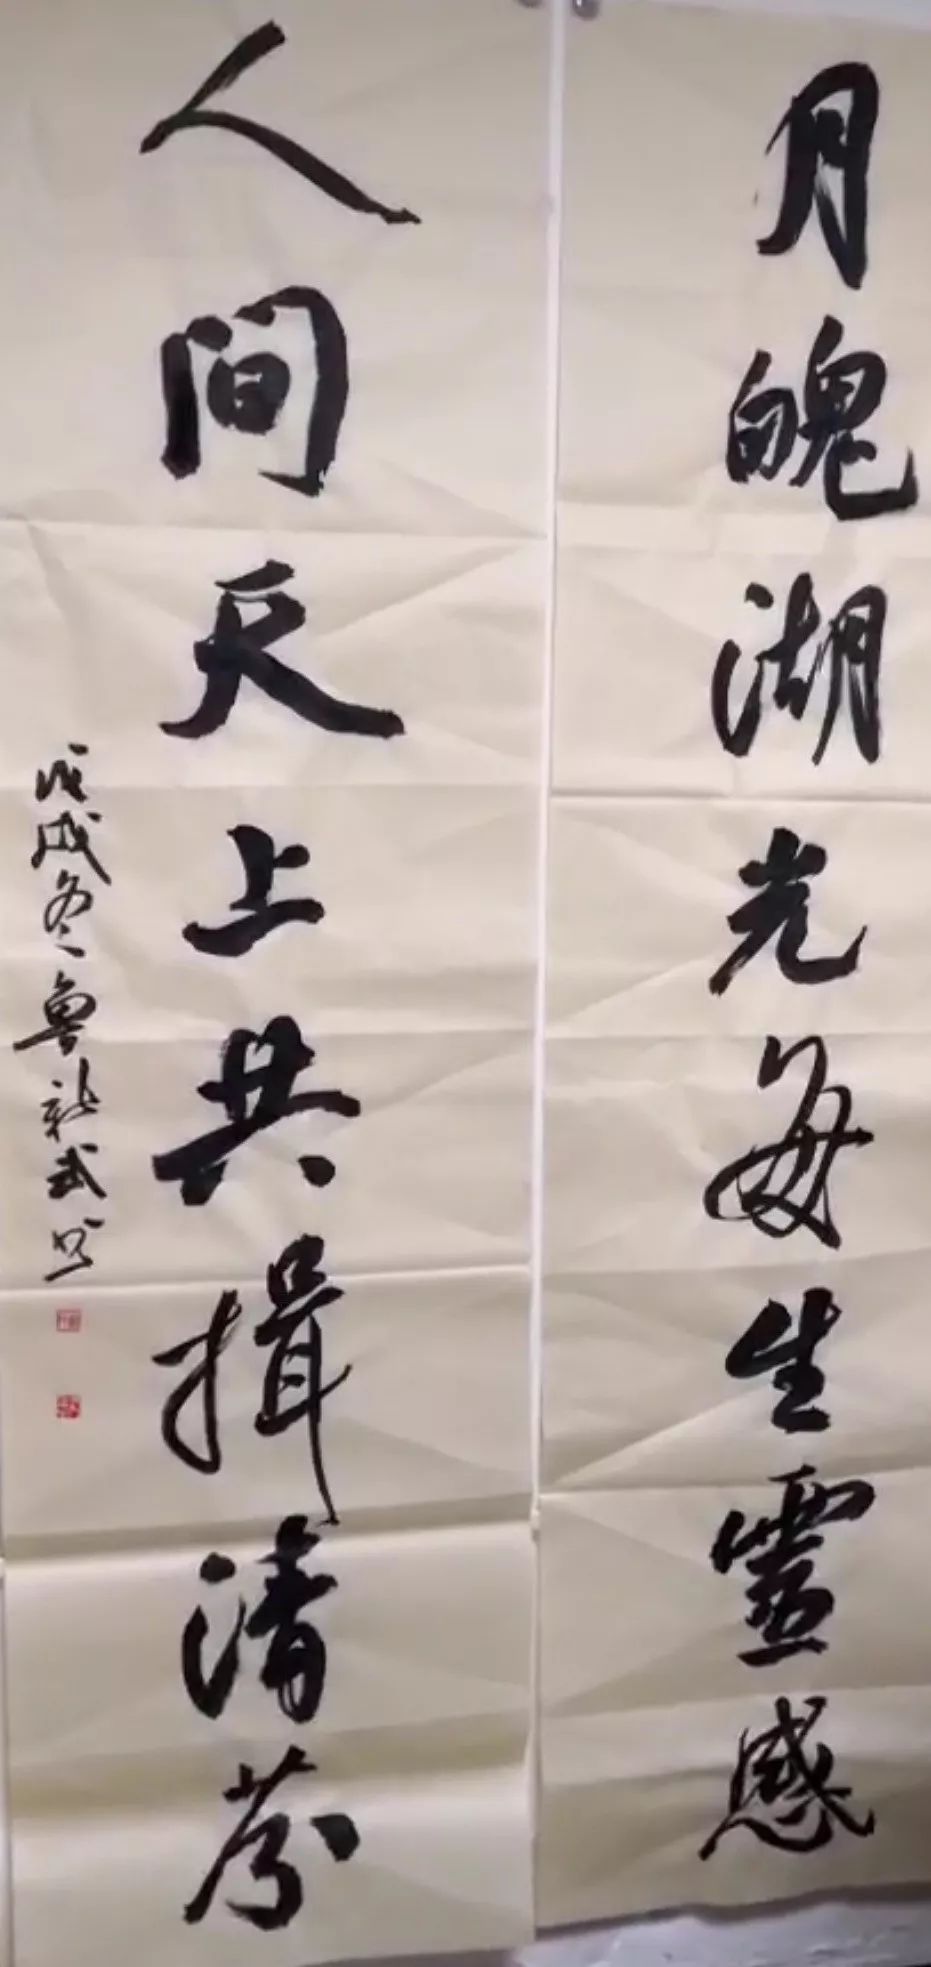 月魄湖光每生靈感
人间天上共揖清芬
戊戌冬魯新武书